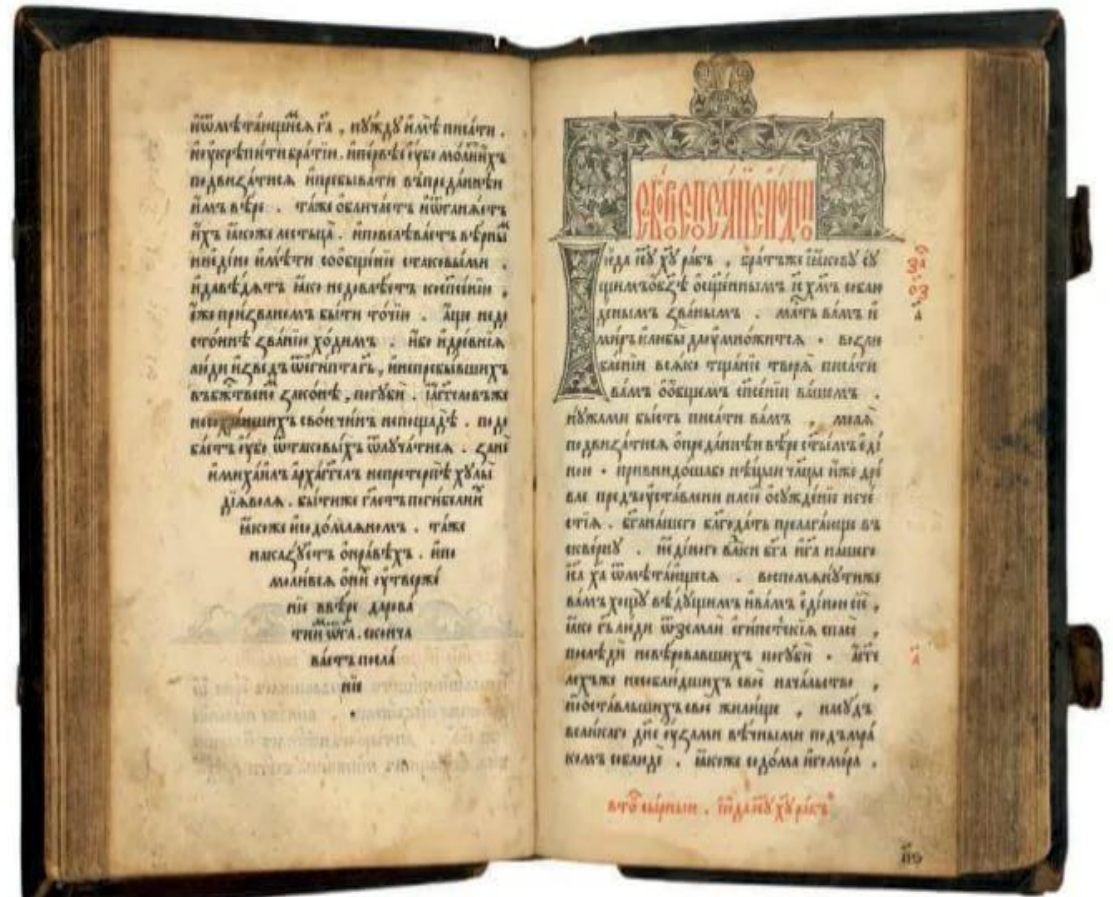 иѿмѣтающиⷯсѧ га҃ , нꙋждꙋ имѣ писати .
иоукрѣпитибратїи . ипервѣе ꙋбо моли иⷯхъ
подвизатисѧ ипребывати въпреданнѣи
имъ вѣре . таже обличаетъ иѿганѧетъ
ихъ ꙗкоже лестьца . иповелѣваетъ вѣрны
ниедїно имѣти сообщенїе стаковыми .
идавѣдѧтъ ꙗко недовлѣетъ коспсенїю ,
еже призванемъ быти точїю . аще недо
стоинѣ званїю ходимъ . ибо идревнѧѧ
люди изведъ ѿегиптагь , инепребывшихъ
въбжтвено законѣ , погꙋби . їагг҃еловъже
несохраншихъ свои чинъ непощадѣ . подо
баетъ ꙋбо ѿтаковыхъ ѿлꙋчатисѧ . зане
имихаилъ архаггелъ непретерпѣ хꙋлы
дїѧволѧ . бытиже гл҃етъ погибели и
ꙗкоже исодомлѧномъ . таже
наказꙋетъ онравѣхъ . ипо
моливсѧ они ѹтверже
нїе ввѣре дарова
тии ѿга҃ . сконча
ваетъ посла
нїе
їюда їс҃ꙋ хс҃ꙋ рабъ , братъже їꙗковꙋ сꙋ
щимъобз҃ѣ осщ҃еннымъ їс҃ хм҃ъ соблю
денымъ званымъ . млт҃ь вамъ и
миръ илюбы даꙋмножитсѧ . возлю
бленїи всѧко тщанїе творѧ писати
вамъ ообщемъ спс҃енїи вашемъ .
нꙋжами бысть писати вамъ , молѧ
подвизатисѧ опреданнѣи вѣре ст҃ымъ еди
ною . привнидошабо нѣцыи чл҃цы иже дре
вле предъꙋставлени насїе осꙋжденїе нече
стїѧ . бг҃анашего блг҃одать прелагающе въ
сквернꙋ . иединого влⷣкꙋ бг҃а иг҃а нашего
їс҃а хс҃а ѿмѣтающесѧ . воспомѧнꙋтиже
вамъ хощꙋ вѣдꙋщимъ ивамъ единою се ,
ꙗко гь҃люди ѿземлѧ египетскїѧ спасе ,
послѣди невѣровавшихъ погꙋби . агг҃е
лехъже несоблюдшихъ свое начальство ,
ноставльшихъ свое жилище , насꙋдъ
великаго дн҃е ꙋзами вѣчными подъмра
комъ соблюде . ꙗкоже содома игомора .
вто сырныи . їюда їс҃ꙋ хс҃ꙋ рабъ